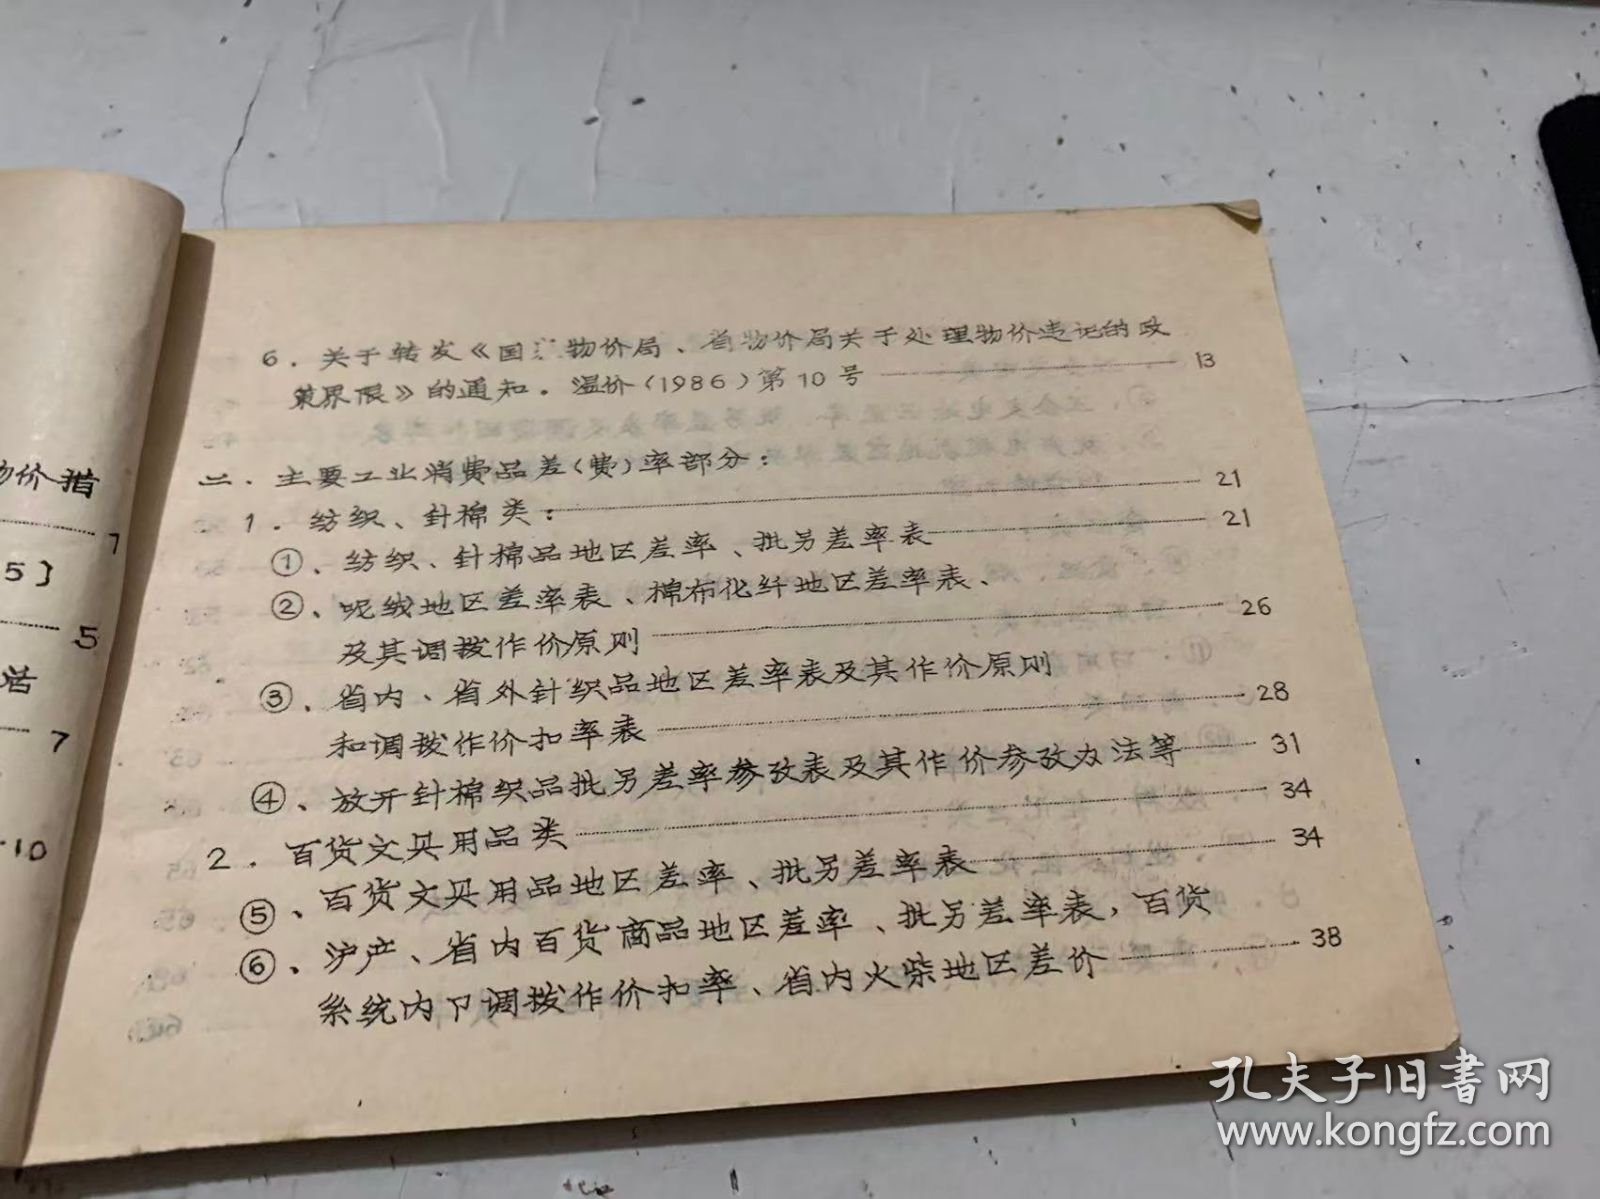 物价措
7
5〕
5
活
7
10
6. 关于转发《国家物价局、省物价局关于处理物价违记的政
策界限》的通知。温价(1986)第10号 13
二. 主要工业消费品差(费)率部分:
1. 纺织、针棉类: 21
①、纺织、针棉品地区差率、批另差率表 21
②、呢绒地区差率表、棉布化纤地区差率表、
及其调拨作价原则 26
③、省内、省外针织品地区差率表及其作价原则
和调拨作价扣率表 28
④、放开针棉织品批另差率参攷表及其作价参攷办法等 31
2. 百货文具用品类 34
⑤、百货文具用品地区差率、批另差率表 34
⑥、沪产、省内百货商品地区差率、批另差率表,百货
系统内卩调拨作价扣率、省内火柴地区差价 38
孔夫子旧书网
www.kongfz.com